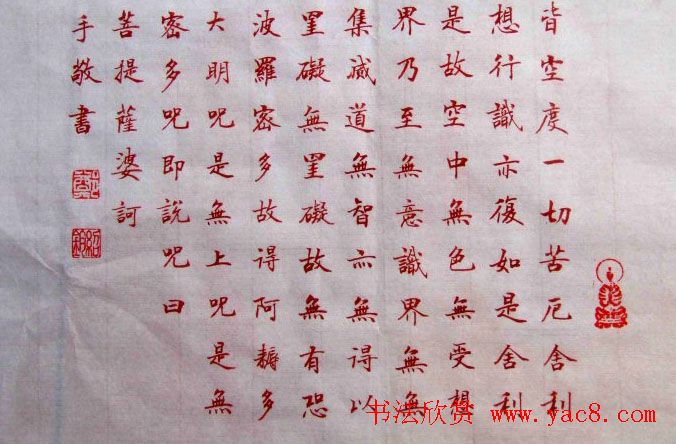 皆空度一切苦厄舍利
想行識亦復如是舍利
是故空中無色無受想
界乃至無意識界無無
集滅道無智亦無得以
罣礙無罣礙故無有恐
波羅密多故得阿耨多
大明呪是無上呪是無
密多呪即說呪曰
菩提薩婆訶
手敬書
书法欣赏 www.yac8.com